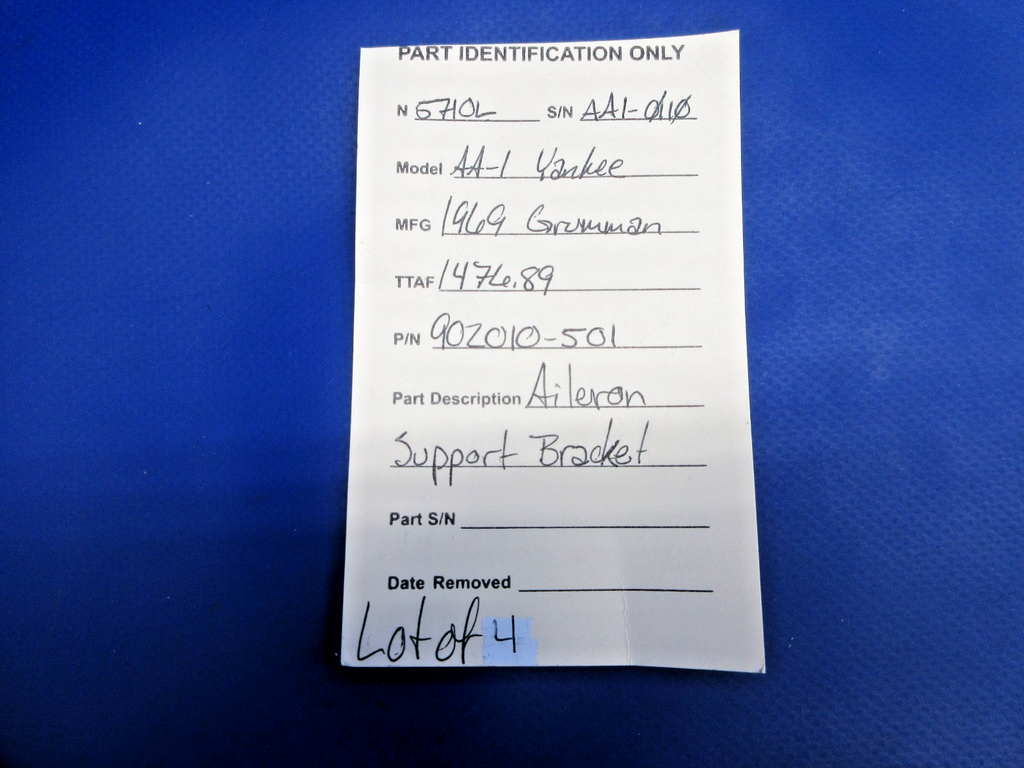 PART IDENTIFICATION ONLY
N 5710L S/N AA1-0110
Model AA-1 Yankee
MFG 1969 Grumman
TTAF 1476.89
P/N 902010-501
Part Description Aileron
Support Bracket
Part S/N
Date Removed
Lot of 4